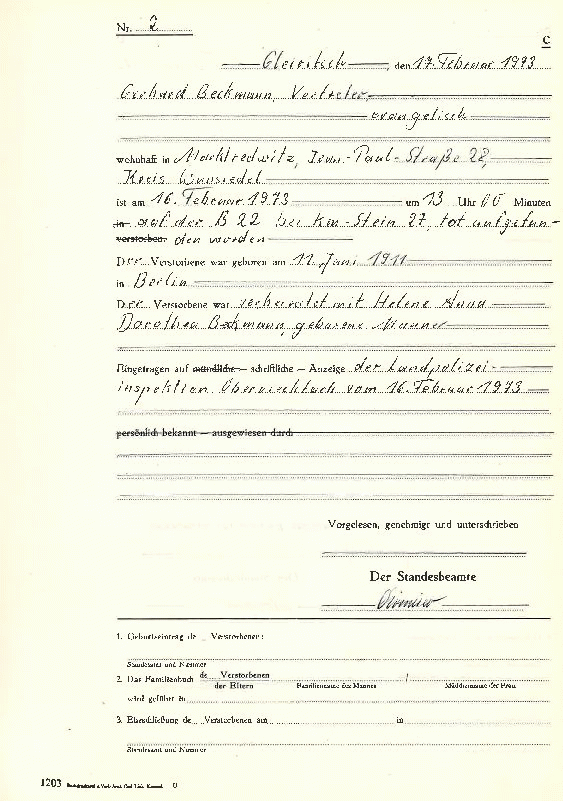 Nr. 2
C
Gleiritsch, den 17. Februar 1973
Gerhard Beckmann, Vertreter,
evangelisch
wohnhaft in Marktredwitz, Jean-Paul-Straße 22,
Kreis Wunsiedel
ist am 16. Februar 1973 um 23 Uhr 00 Minuten
in auf der B 22 bei Km-Stein 27, tot aufgefun-
verstorben. den worden
Der Verstorbene war geboren am 11. Juni 1911
in Berlin
Der Verstorbene war verheiratet mit Helene Anna
Dorothea Beckmann, geborene
Eingetragen auf mündliche – schriftliche – Anzeige der Landpolizei-
inspektion Oberviechtach vom 16. Februar 1973
persönlich bekannt – ausgewiesen durch
Vorgelesen, genehmigt und unterschrieben
Der Standesbeamte
1. Geburtseintrag de Verstorbenen:
Standesamt und Nummer
2. Das Familienbuch de Verstorbenen /
der Eltern Familienname des Mannes Mädchenname der Frau
wird geführt in
3. Eheschließung de Verstorbenen am in
Standesamt und Nummer
1203